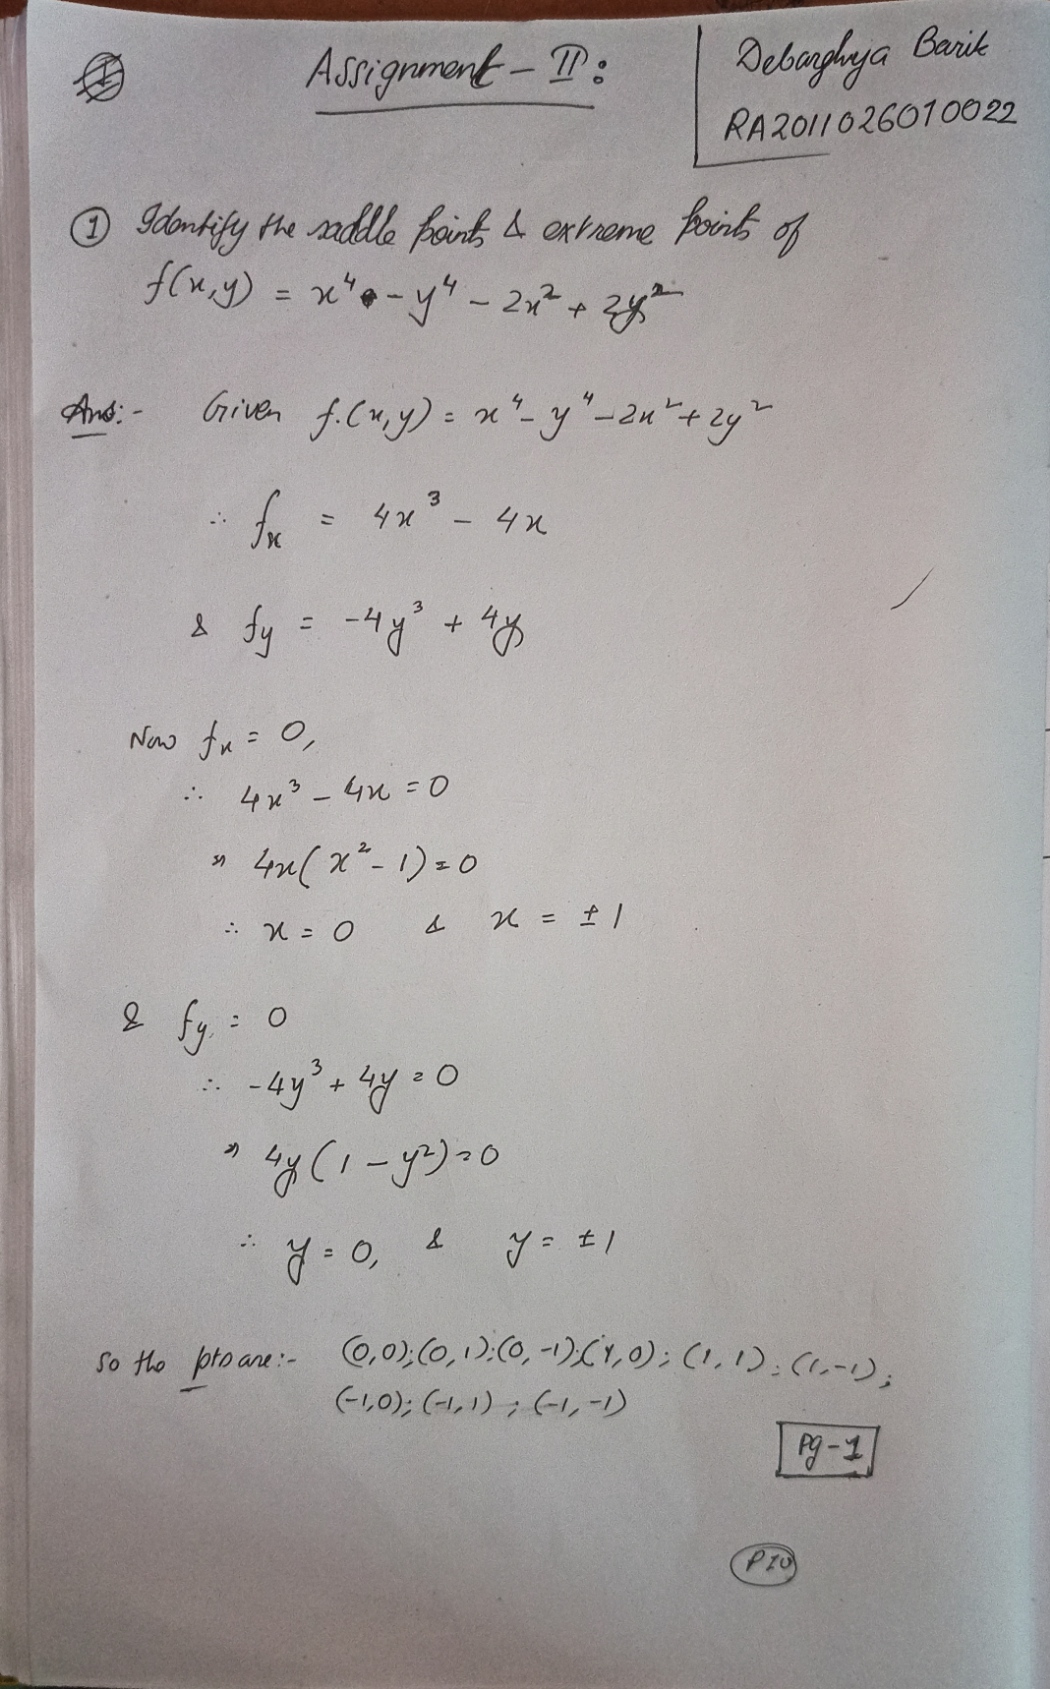 Assignment - II :
Debarghya Barik
RA2011026010022
① Identify the saddle points & extreme points of
f(x,y) = x⁴ - y⁴ - 2x² + 2y²
Ans:- Given f.(x,y) = x⁴ - y⁴ - 2x² + 2y²
∴ fx = 4x³ - 4x
& fy = -4y³ + 4y
Now fx = 0,
∴ 4x³ - 4x = 0
⇒ 4x(x² - 1) = 0
∴ x = 0 & x = ±1
& fy = 0
∴ -4y³ + 4y = 0
⇒ 4y(1 - y²) = 0
∴ y = 0, & y = ±1
So the pts are:- (0,0); (0,1); (0,-1); (1,0); (1,1); (1,-1);
(-1,0); (-1,1); (-1,-1)
Pg-1